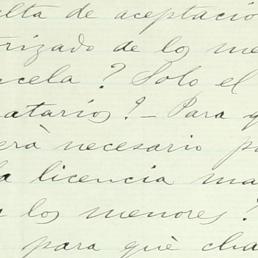 ulta de aceptacio
rizado de los me
cela? Solo el
atarios? - Para q
erà necesario po
la licencia ma
a los menores?
para què cla